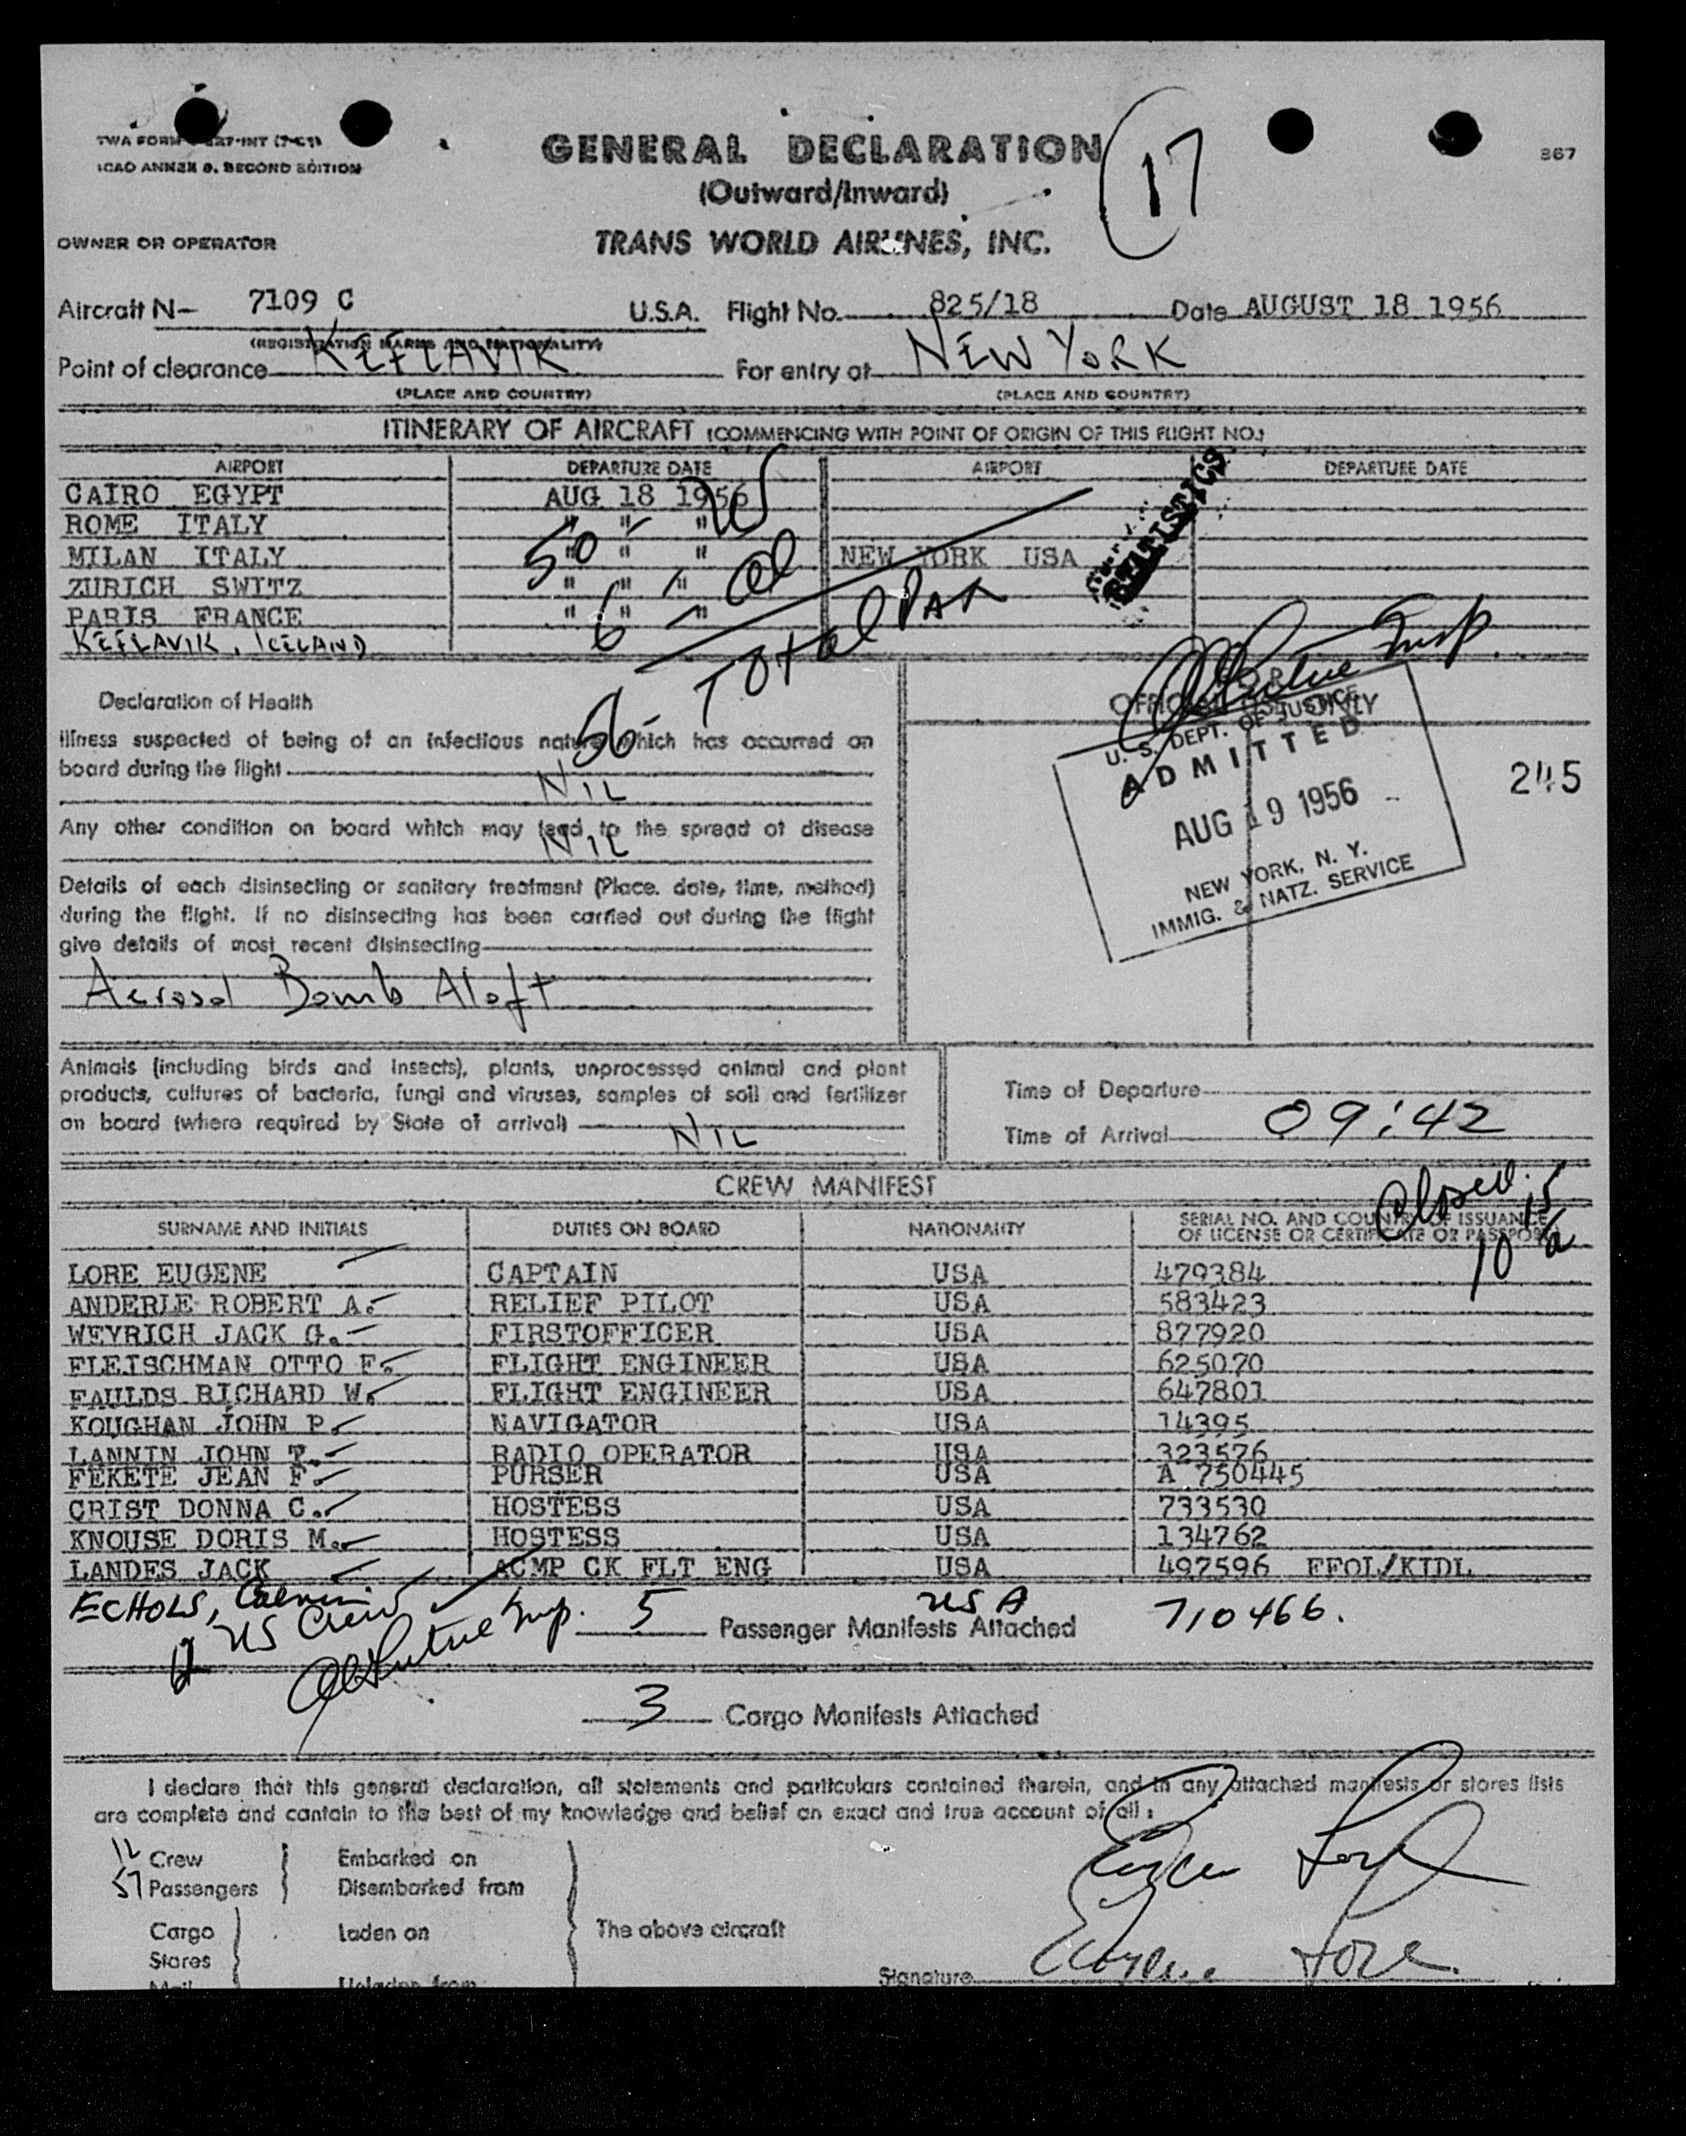 TWA FORM
ICAO ANNEX 9, SECOND EDITION
GENERAL DECLARATION
(Outward/Inward)
17
867
OWNER OR OPERATOR
TRANS WORLD AIRLINES, INC.
Aircraft N- 7109 C U.S.A. Flight No. 825/18 Date AUGUST 18 1956
(REGISTRATION MARKS AND NATIONALITY)
Point of clearance KEFLAVIK For entry at NEW YORK
(PLACE AND COUNTRY) (PLACE AND COUNTRY)
ITINERARY OF AIRCRAFT (COMMENCING WITH POINT OF ORIGIN OF THIS FLIGHT NO.)
AIRPORT DEPARTURE DATE AIRPORT DEPARTURE DATE
CAIRO EGYPT AUG 18 1956
ROME ITALY " " "
MILAN ITALY " " " NEW YORK USA
ZURICH SWITZ " " "
PARIS FRANCE " " "
KEFLAVIK, ICELAND
50 - US
6 - al
56 - Total Pax
STATISTICS
Insp.
Declaration of Health
FOR OFFICIAL USE ONLY
Illness suspected of being of an infectious nature which has occurred on
board during the flight
NIL
Any other condition on board which may lead to the spread of disease
NIL
Details of each disinsecting or sanitary treatment (Place, date, time, method)
during the flight. If no disinsecting has been carried out during the flight
give details of most recent disinsecting
Aerosol Bomb Aloft
U. S. DEPT. OF JUSTICE
ADMITTED
AUG 19 1956
NEW YORK, N. Y.
IMMIG. & NATZ. SERVICE
245
Animals (including birds and insects), plants, unprocessed animal and plant
products, cultures of bacteria, fungi and viruses, samples of soil and fertilizer
on board (where required by State of arrival) NIL
Time of Departure
Time of Arrival 09:42
CREW MANIFEST
Closed
SURNAME AND INITIALS DUTIES ON BOARD NATIONALITY SERIAL NO. AND COUNTRY OF ISSUANCE
OF LICENSE OR CERTIFICATE OR PASSPORT
LORE EUGENE CAPTAIN USA 479384
ANDERLE ROBERT A. RELIEF PILOT USA 583423
WEYRICH JACK G. FIRSTOFFICER USA 877920
FLEISCHMAN OTTO F. FLIGHT ENGINEER USA 625070
FAULDS RICHARD W. FLIGHT ENGINEER USA 647801
KOUGHAN JOHN P. NAVIGATOR USA 14395
LANNIN JOHN T. RADIO OPERATOR USA 323576
FEKETE JEAN F. PURSER USA A 750445
CRIST DONNA C. HOSTESS USA 733530
KNOUSE DORIS M. HOSTESS USA 134762
LANDES JACK ACMP CK FLT ENG USA 497596 FFOL/KIDL
ECHOLS, Calvin USA 710466.
12 US Crew
Insp. 5 Passenger Manifests Attached
3 Cargo Manifests Attached
I declare that this general declaration, all statements and particulars contained therein, and in any attached manifests or stores lists
are complete and contain to the best of my knowledge and belief an exact and true account of all:
12 Crew Embarked on
57 Passengers Disembarked from
Cargo Laden on The above aircraft
Stores
Mail Unladen from
Eugene Lore
Signature Eugene Lore